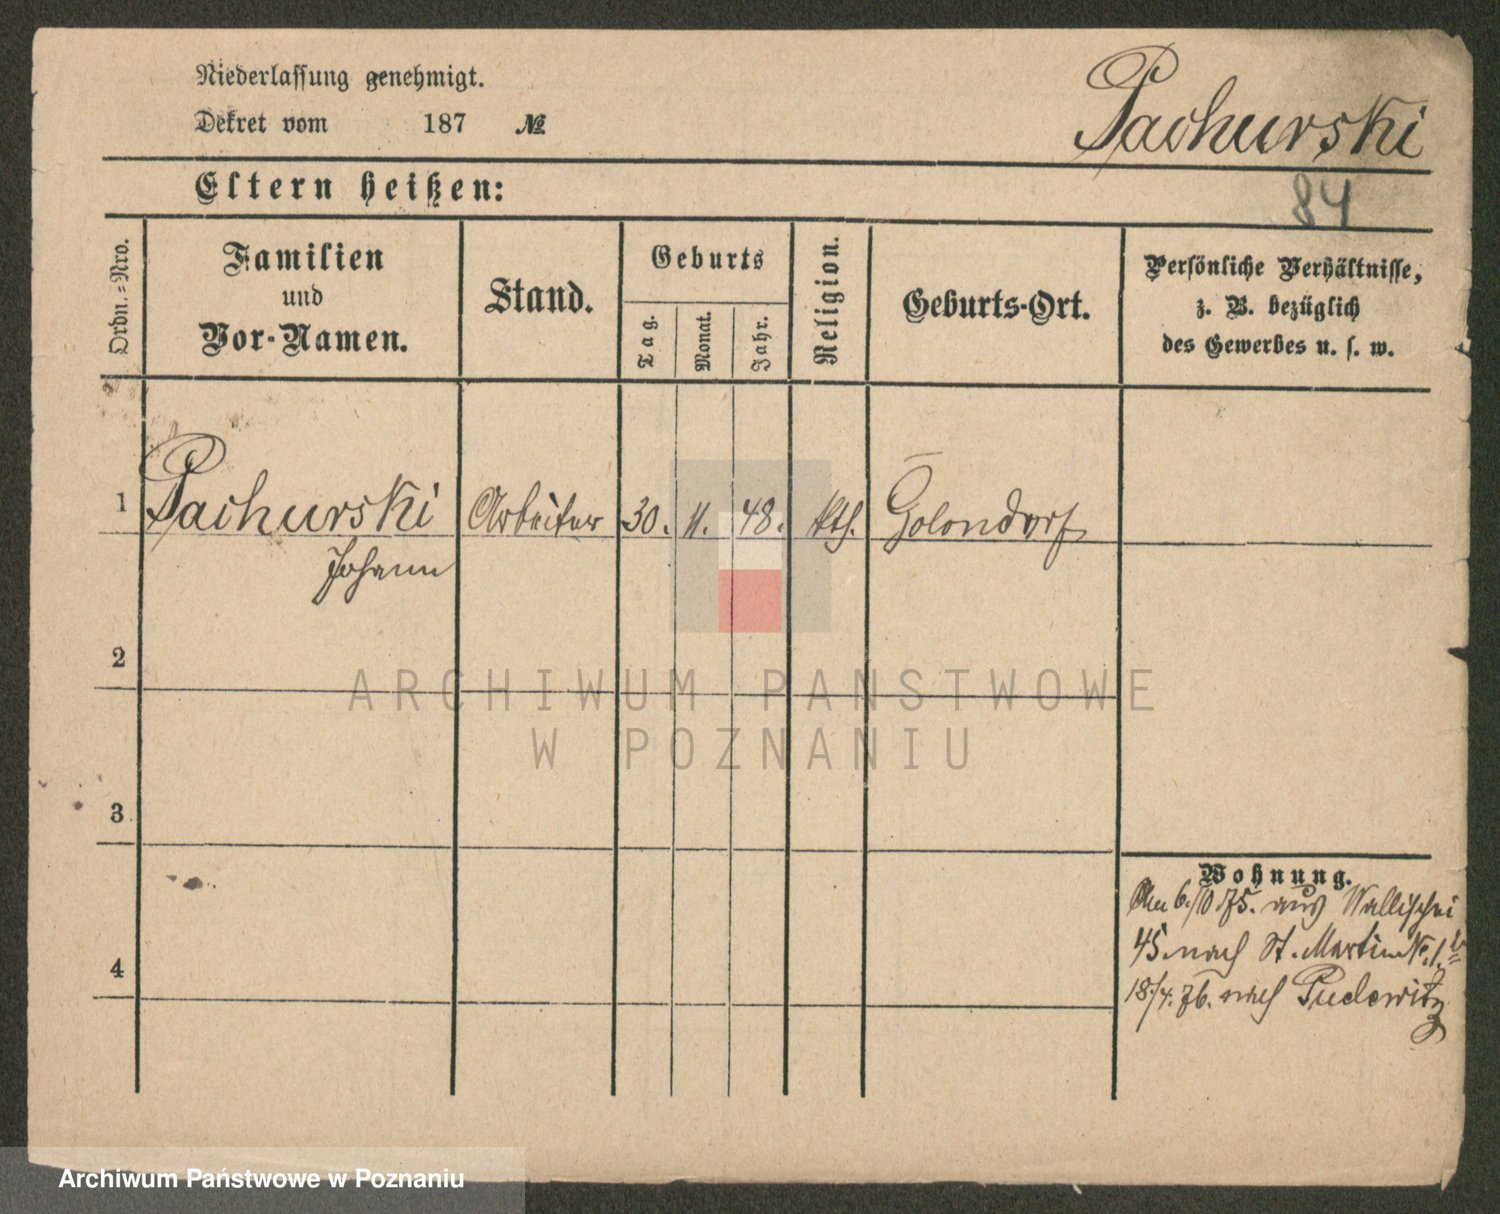 Niederlassung genehmigt.
Dekret vom 187 №
Pachurski
84
Eltern heißen:
Ordn.-Nro.
Familien
und
Vor-Namen.
Stand.
Geburts
Tag.
Monat.
Jahr.
Religion.
Geburts-Ort.
Persönliche Verhältnisse,
z. B. bezüglich
des Gewerbes u. s. w.
1 Pachurski Arbeiter 30. 11. 48. kth. Golondorf
Johann
2
3
4
Wohnung.
Am 6./10 75. aus Wallischei
45. nach St. Martin No. 1.
18/4. 76. nach Pudewitz
ARCHIWUM PAŃSTWOWE
W POZNANIU
Archiwum Państwowe w Poznaniu